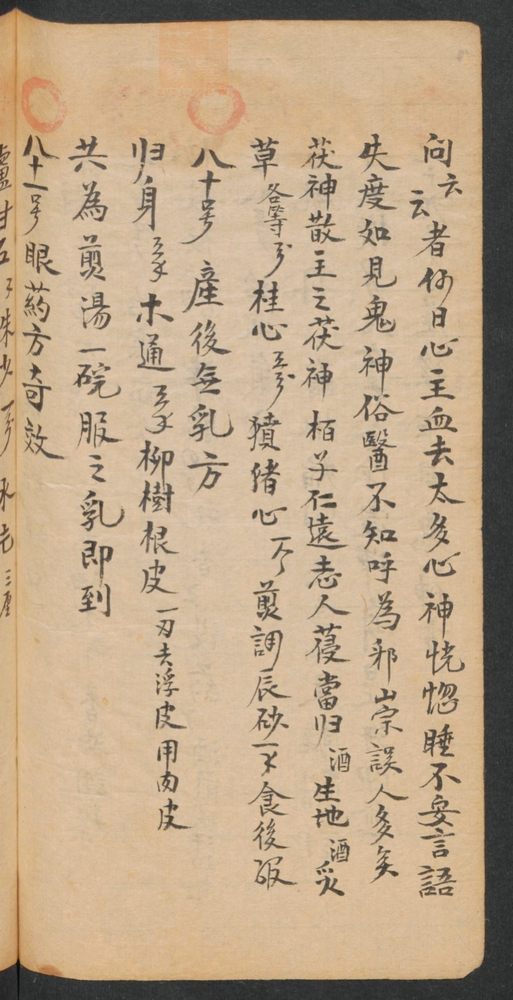 问云云者何曰心主血去太多心神恍惚睡不安言語
失度如見鬼神俗醫不知呼為邪祟誤人多矣
茯神散主之茯神柏子仁遠志人蓡當归酒生地酒炙
草各等分桂心五分獖猪心一个煎調辰砂一不食後服
八十号 產後無乳方
归身 木通 柳樹根皮一刃去浮皮用肉皮
共為煎湯一碗服之乳即到
八十一号眼葯方奇效
盧甘石